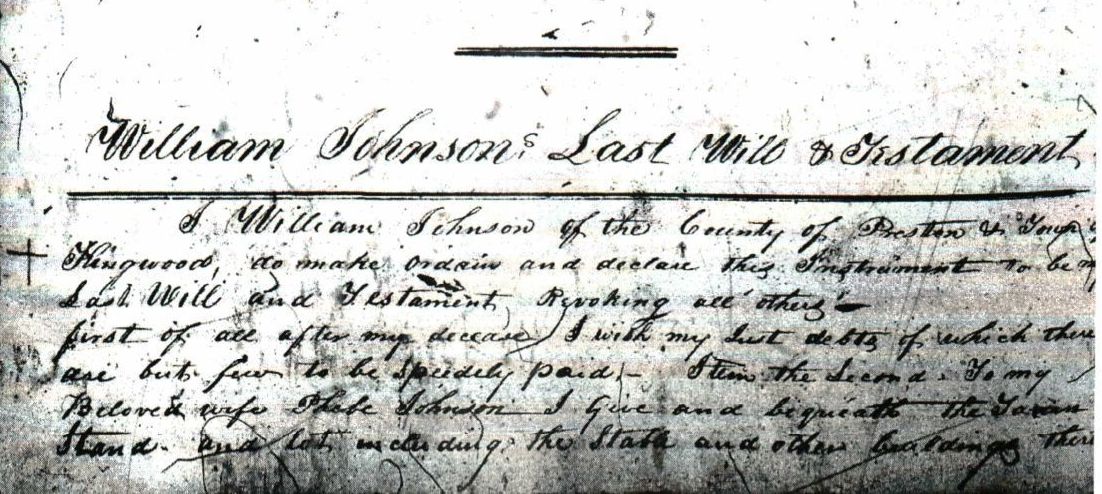 William Johnson's Last Will & Testament
I William Johnson of the County of Preston & Town of
Kingwood, do make ordain and declare this Instrument to be my
Last Will and Testament, Revoking all others
first of all after my decease I wish my Just debts of which there
are but few to be speedely paid,- Item the Second. To my
Beloved wife Phebe Johnson I Give and bequeath the Tavern
Stand. and lot including the Stable and other buildings there